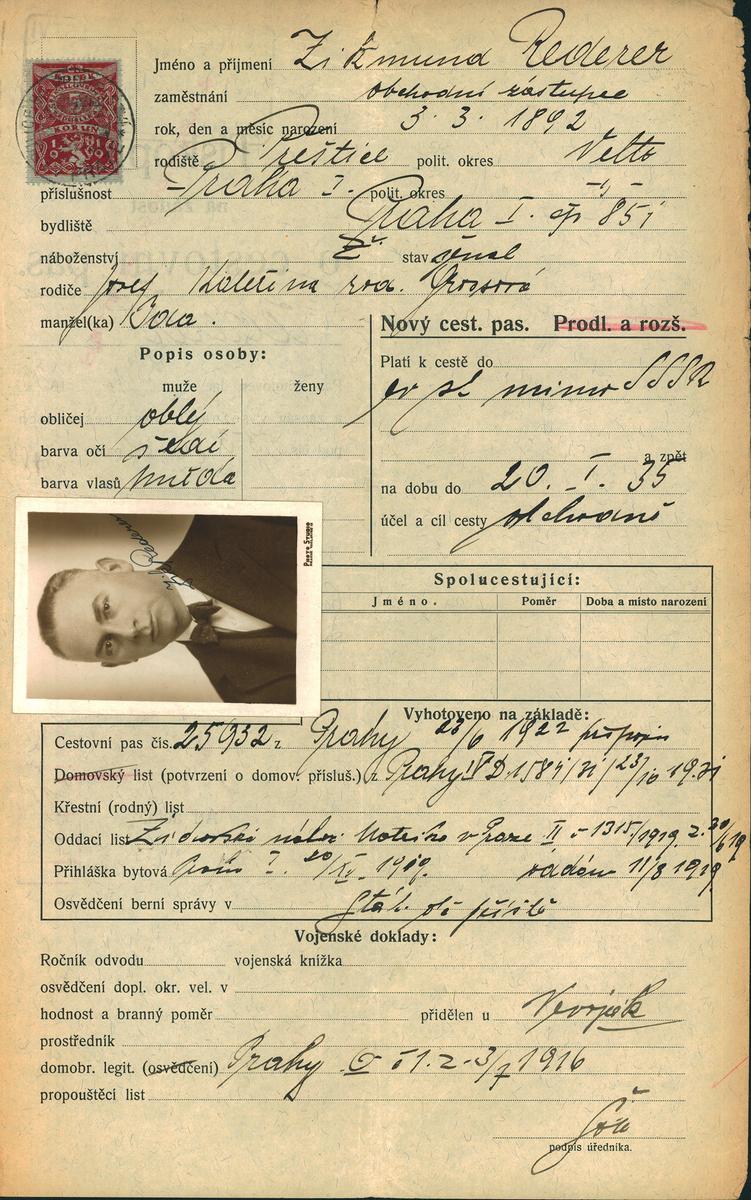 KORUN
Jméno a příjmení Zikmund Rederer
zaměstnání obchodní zástupce
rok, den a měsíc narození 3. 3. 1892
rodiště Přeštice polit. okres
příslušnost Praha I. polit. okres -"-
bydliště Praha I. čp 851
náboženství ž stav ženat
rodiče Josef Kateřina roz.
manžel(ka) Ida.
Nový cest. pas. Prodl. a rozš.
Popis osoby:
muže ženy
obličej oblý
barva očí šedé
barva vlasů hnědá
Platí k cestě do
ev st mimo SSSR
a zpět
na dobu do 20. I. 35
účel a cíl cesty obchodně
Zik Rederer
Spolucestující:
Jméno. Poměr Doba a místo narození
Vyhotoveno na základě:
Cestovní pas čís. 25932 z Prahy 23/6 1922
Domovský list (potvrzení o domov. přísluš.) z Prahy 23/10 1931
Křestní (rodný) list
Oddací list Židovské nábož. v Praze II č 1315/1919 z 20/6 19
Přihláška bytová 1919. 11/8 1919
Osvědčení berní správy v
Vojenské doklady:
Ročník odvodu vojenská knížka
osvědčení dopl. okr. vel. v
hodnost a branný poměr přidělen u
prostředník
domobr. legit. (osvědčení) Prahy č 1. z 3/7 1916
propouštěcí list
podpis úředníka.